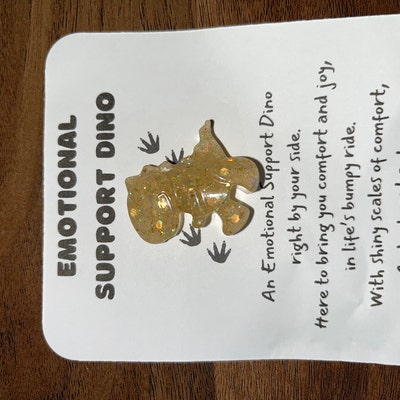 EMOTIONAL
SUPPORT DINO
An Emotional Support Dino
right by your side.
Here to bring you comfort and joy,
in life's bumpy ride.
With shiny scales of comfort,